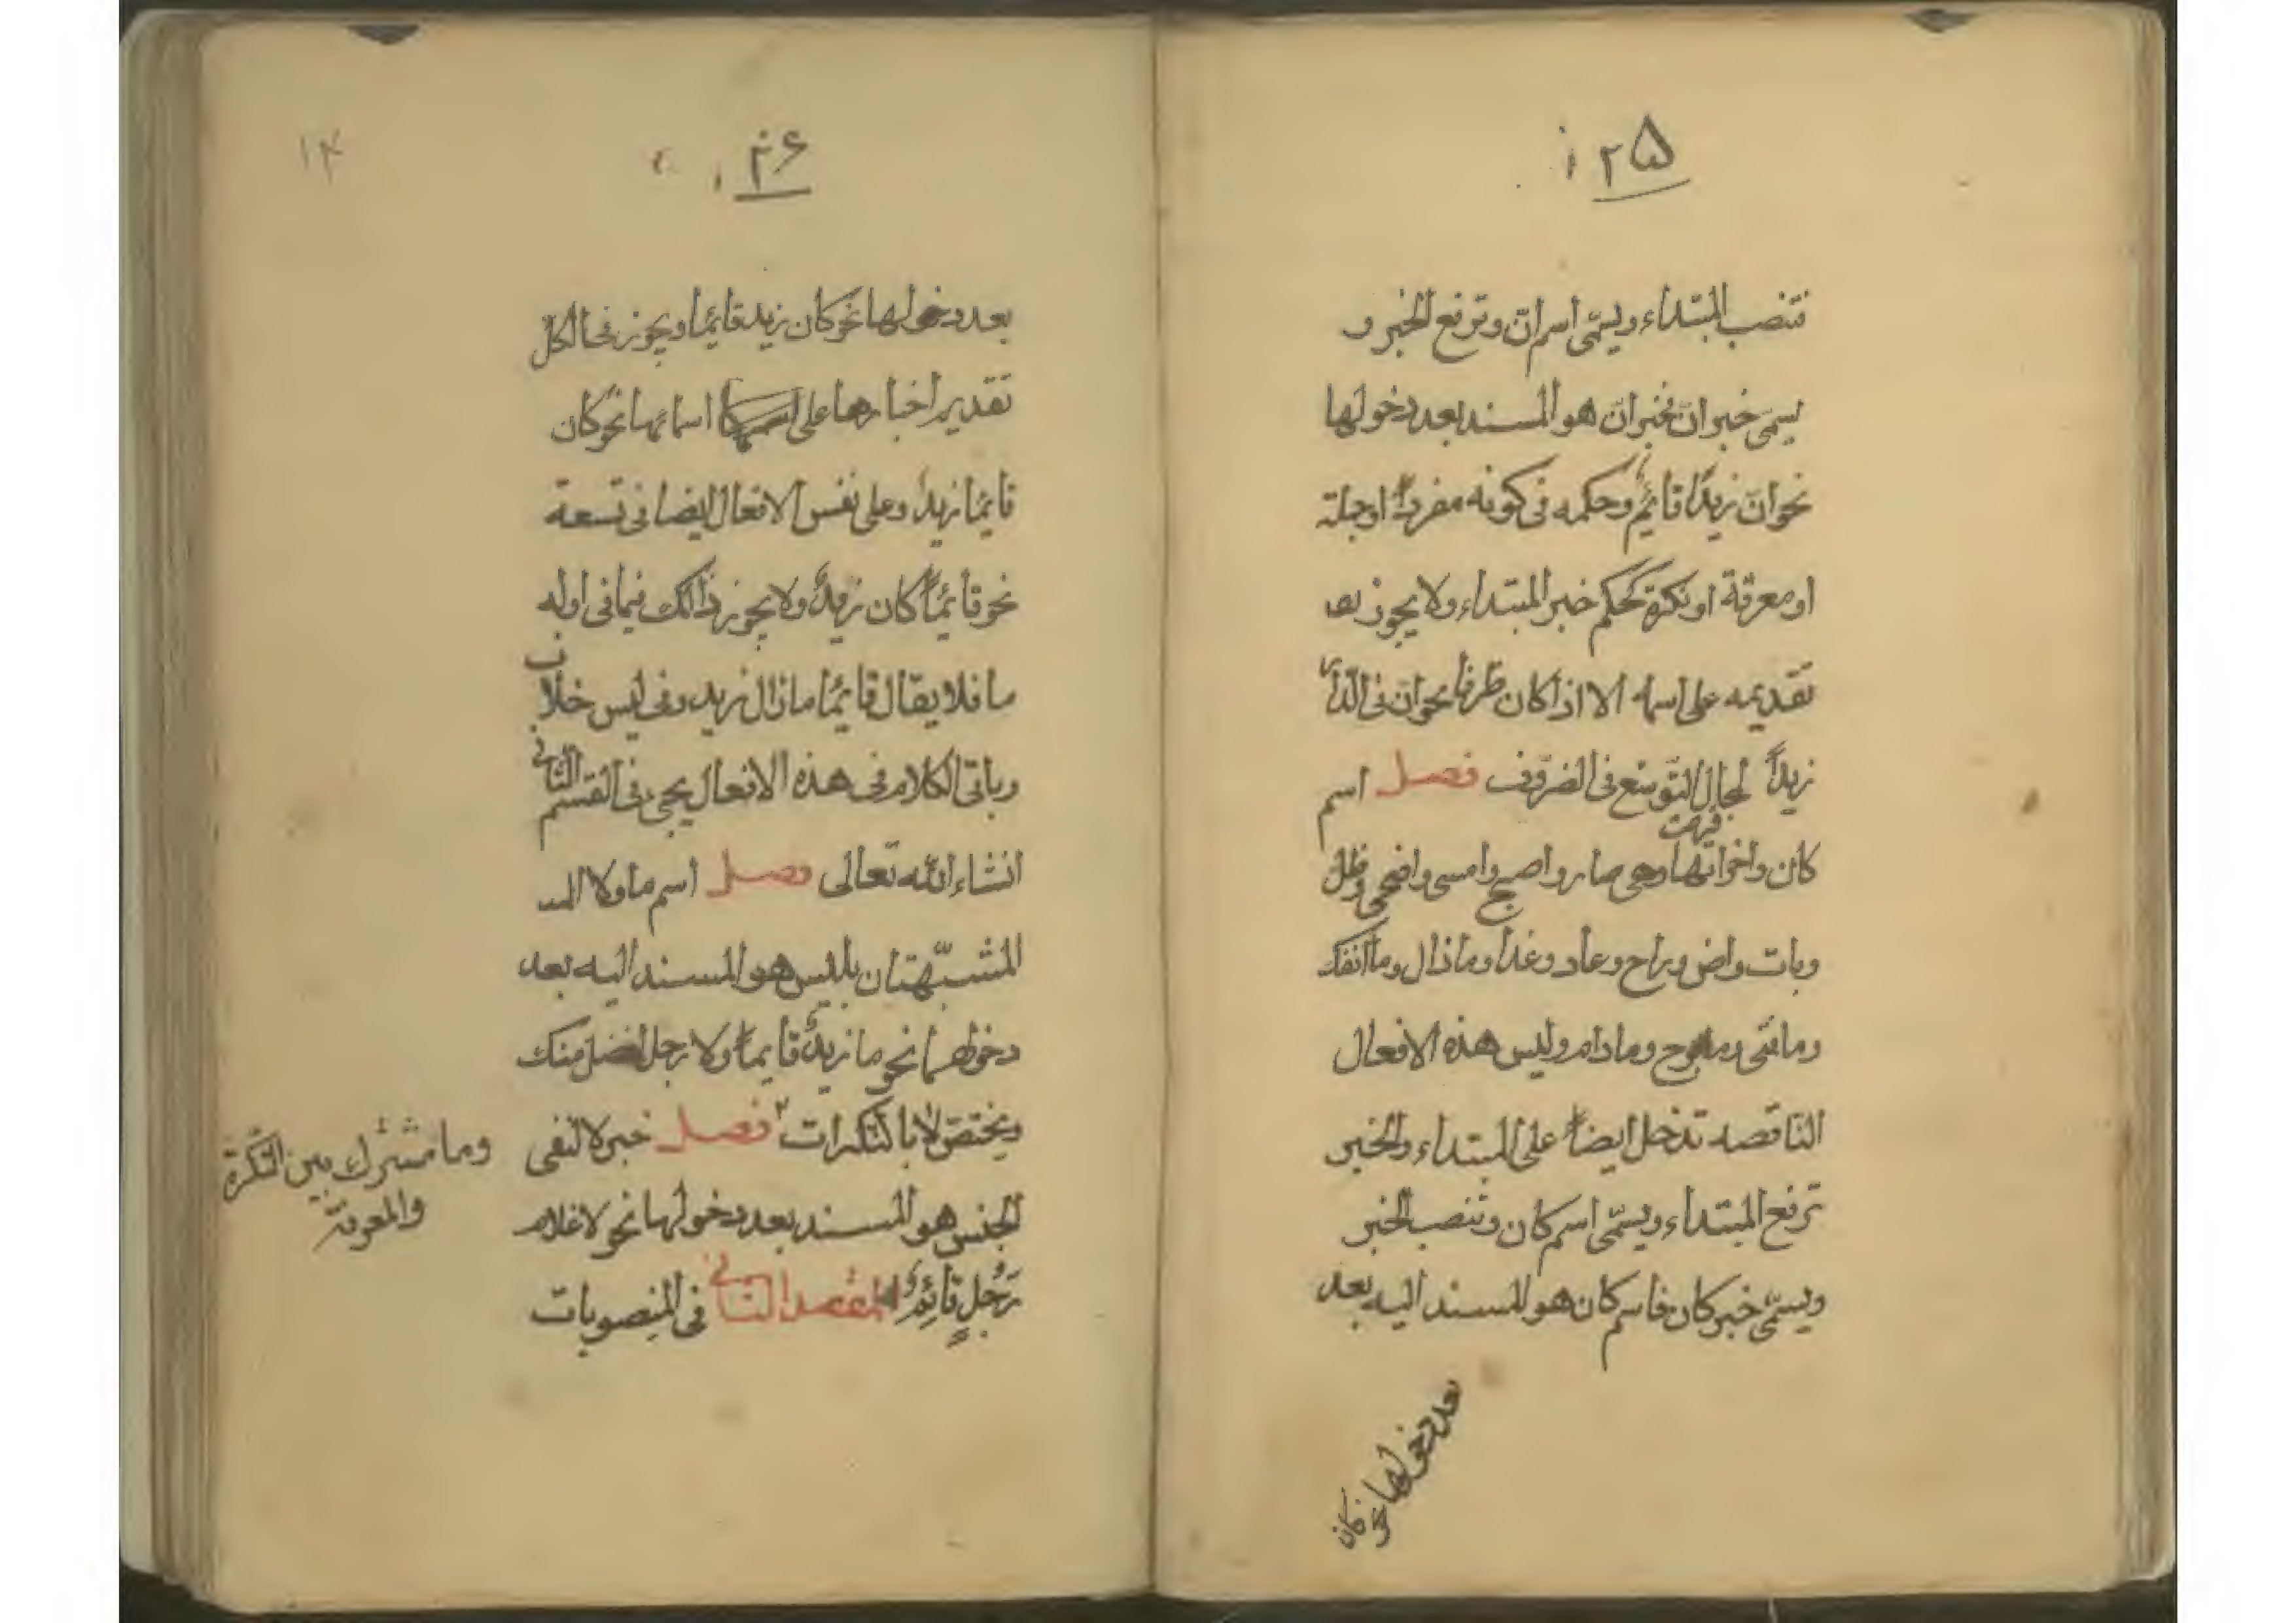 ۲۵
فتنصب المبتداء ويسمّى اسم انّ وترفع الخبر و
يسمّى خبر انّ فخبر انّ هو المسند بعد دخولها
نحو انّ زيدًا قائمٌ وحكمه فى كونه مفرداً او جملة
او معرفة او نكرة كحكم خبر المبتداء ولا يجوز
تقديمه على اسمها الا اذا كان ظرفا نحو انّ فى الدّار
زيداً لمجال التّوسّع فى الضروف فصل اسم
كان واخواتها وهى صار واصبح وامسى واضحى وظل
وبات واض وراح وعاد وغدا ومازال وما انفك
ومافتى ومابرح ومادام وليس هذه الافعال
الناقصه تدخل ايضاً على المبتداء والخبر
ترفع المبتداء ويسمّى اسم كان وتنصب الخبر
ويسمّى خبر كان فاسم كان هو المسند اليه بعد
بعد دخولها نحو كان
۲۶
۱۴
بعد دخولها نحو كان زيد قائما ويجوز فى الكل
تقدير اخبارها على اسمائها نحو كان
قائمًا زيدٌ وعلى نفس الافعال ايضا فى تسعة
نحو قائماً كان زيدٌ ولا يجوز ذالك فيما فى اوله
ما فلا يقال قائمًا مازال زيد وفى ليس خلاف
وباقى الكلام فى هذه الافعال يجئ فى القسم الثانى
انشاء الله تعالى فصل اسم ما ولا
المشبّهتان بليس هو المسند اليه بعد
دخولهما نحو ما زيدٌ قائماً ولا رجل افضل منك
ويختصّ لا بالنّكرات فصل خبر لا لنفى
وما مشترك بين النّكرة
والمعرفة
الجنس هو المسند بعد دخولها نحو لا غلام
رَجُلٍ قائِمٌ المقصد الثانى فى المنصوبات